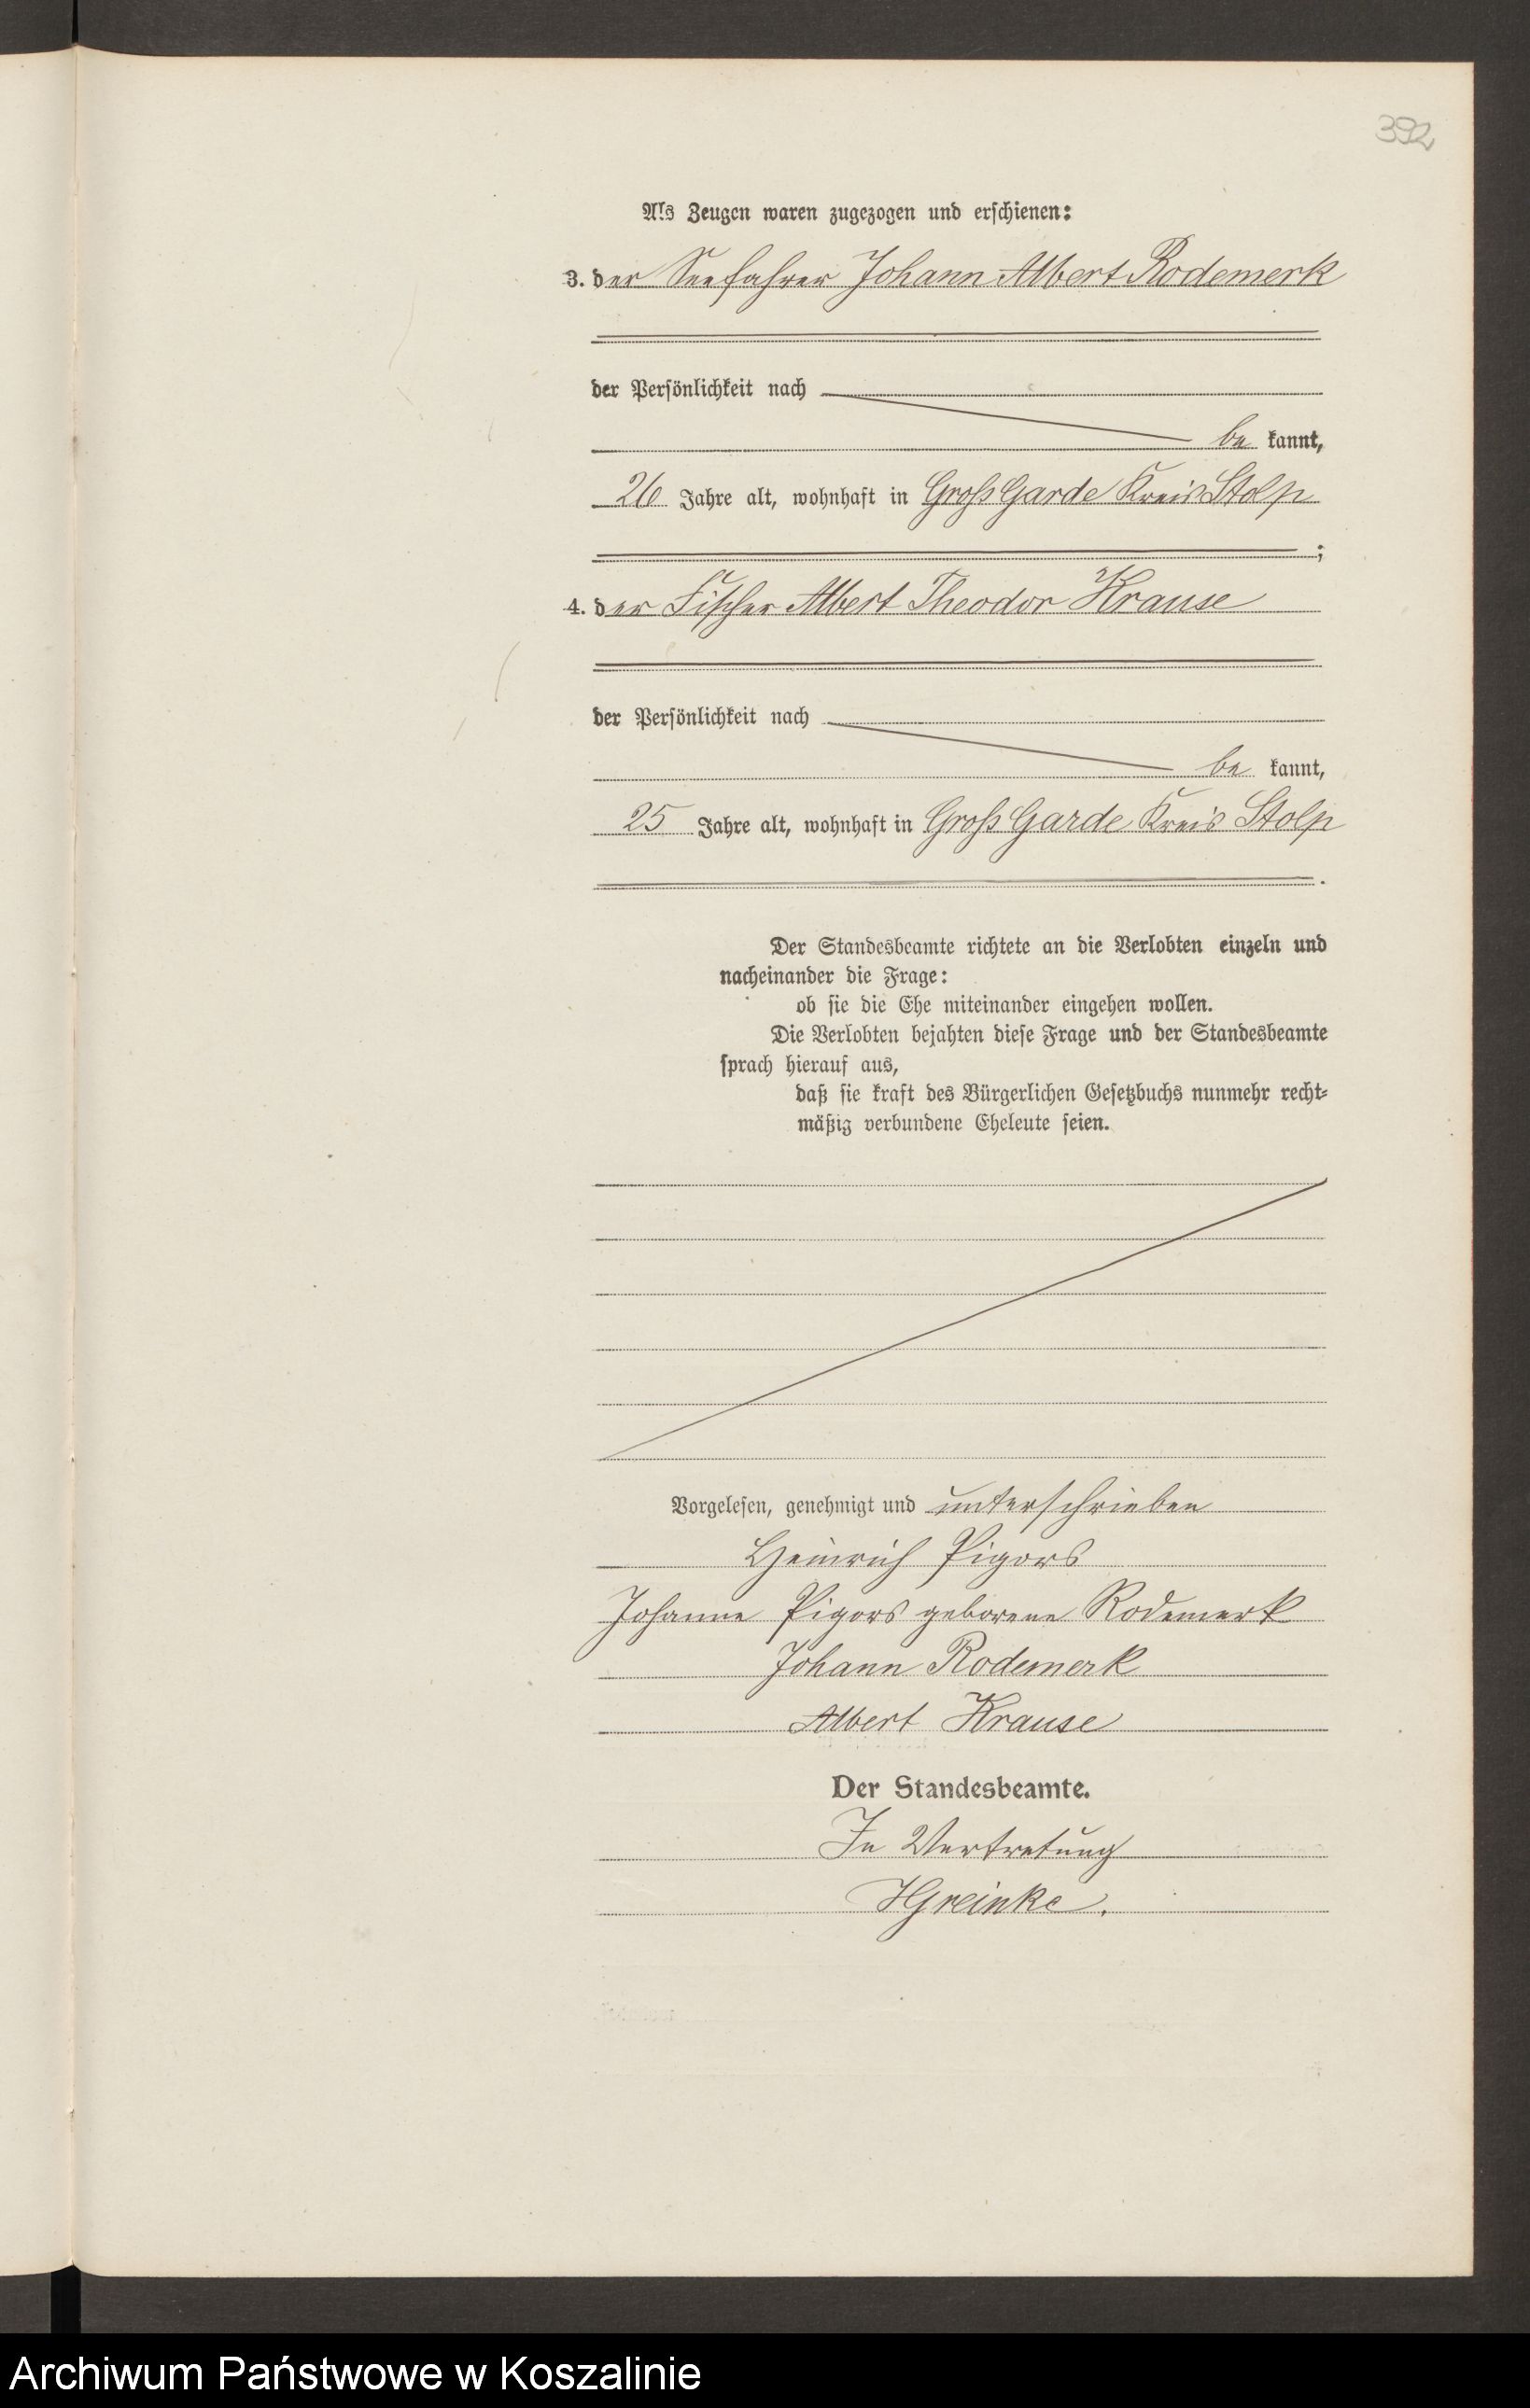 392
Als Zeugen waren zugezogen und erschienen:
3. der Seefahrer Johann Albert Rodemerk
der Persönlichkeit nach
be kannt,
26 Jahre alt, wohnhaft in Groß Garde Kreis Stolp
;
4. der Fischer Albert Theodor Krause
der Persönlichkeit nach
be kannt,
25 Jahre alt, wohnhaft in Groß Garde Kreis Stolp
.
Der Standesbeamte richtete an die Verlobten einzeln und
nacheinander die Frage:
ob sie die Ehe miteinander eingehen wollen.
Die Verlobten bejahten diese Frage und der Standesbeamte
sprach hierauf aus,
daß sie kraft des Bürgerlichen Gesetzbuchs nunmehr recht-
mäßig verbundene Eheleute seien.
Vorgelesen, genehmigt und unterschrieben
Heinrich Pigors
Johanne Pigors geborene Rodemerk
Johann Rodemerk
Albert Krause
Der Standesbeamte.
In Vertretung
HGreinke.
Archiwum Państwowe w Koszalinie